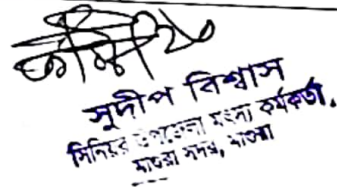 সুদীপ বিশ্বাস
সিনিয়র উপজেলা মৎস্য কর্মকর্তা,
মাগুরা সদর, মাগুরা